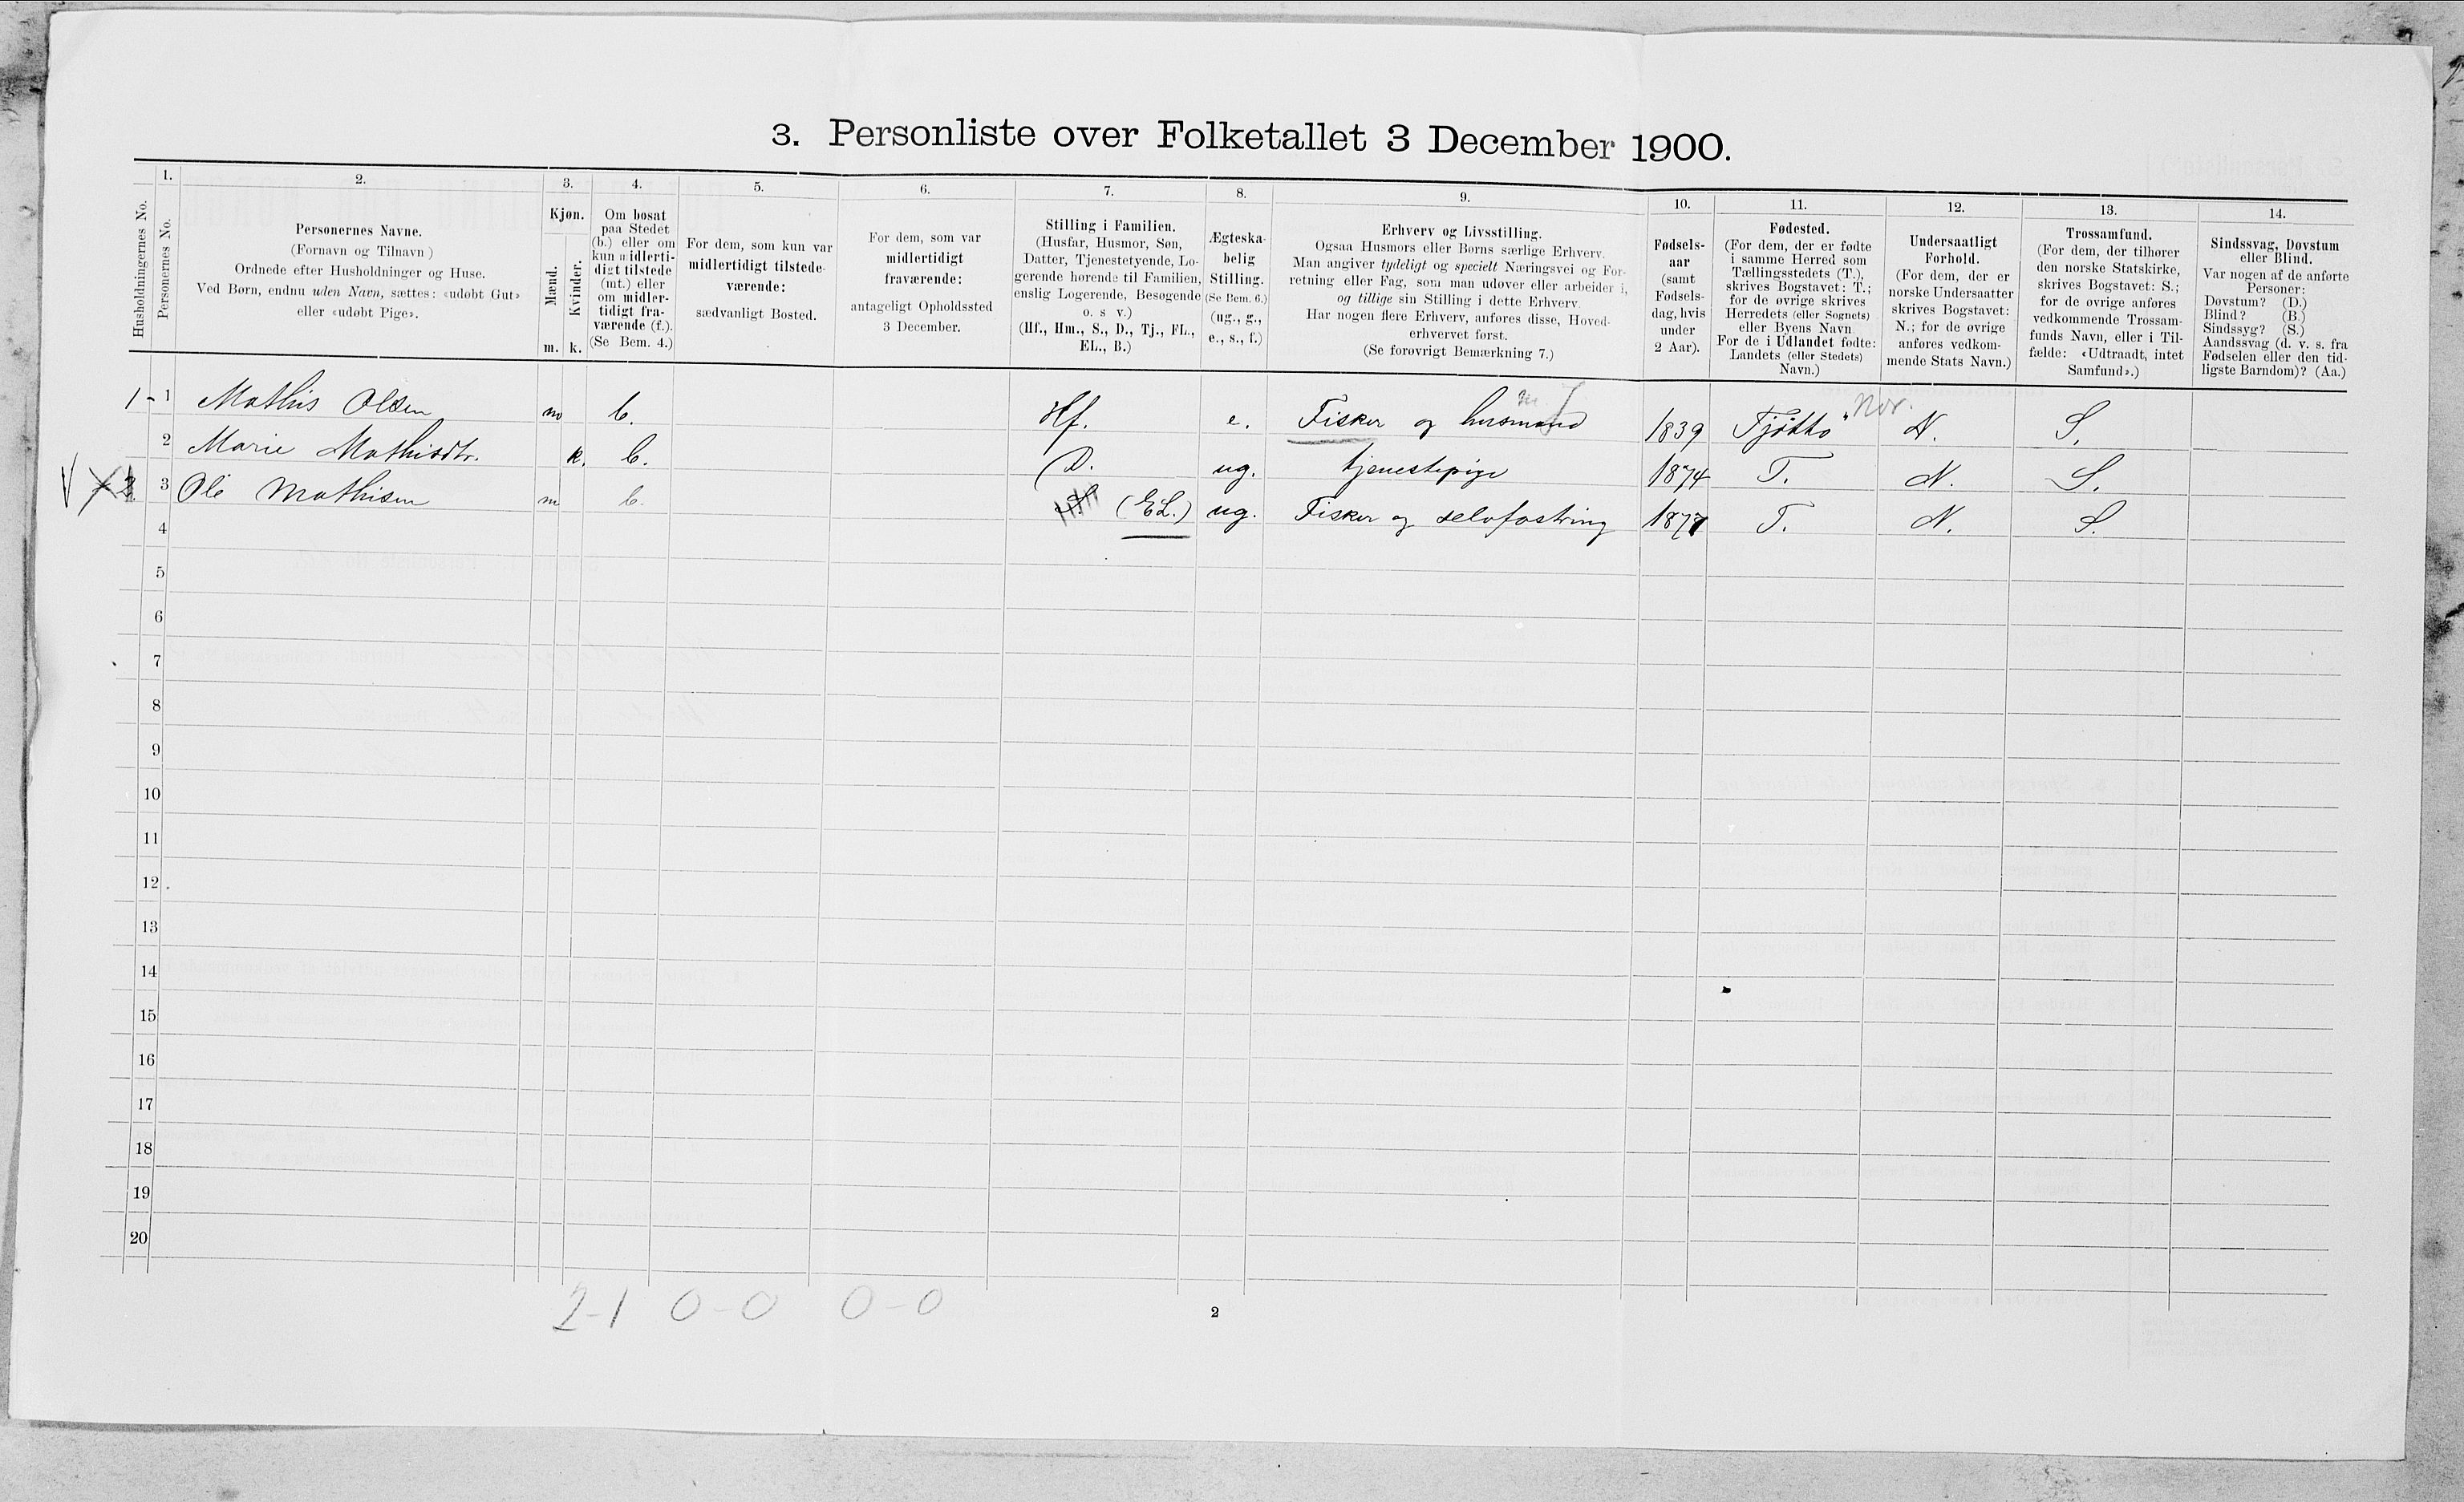 3. Personliste over Folketallet 3 December 1900.
1. 2. 3. 4. 5. 6. 7. 8. 9. 10. 11. 12. 13. 14.
Husholdningernes No.
Personernes No.
Personernes Navne.
(Fornavn og Tilnavn)
Ordnede efter Husholdninger og Huse.
Ved Børn, endnu uden Navn, sættes: «udøbt Gut»
eller «udøbt Pige».
Kjøn.
Mænd.
Kvinder.
m. k.
Om bosat
paa Stedet
(b.) eller om
kun midlerti-
digt tilstede
(mt.) eller
om midler-
tidigt fra-
værende (f.).
(Se Bem. 4.)
For dem, som kun var
midlertidigt tilstede-
værende:
sædvanligt Bosted.
For dem, som var
midlertidigt
fraværende:
antageligt Opholdssted
3 December.
Stilling i Familien.
(Husfar, Husmor, Søn,
Datter, Tjenestetyende, Lo-
gerende hørende til Familien,
enslig Logerende, Besøgende
o. s v.)
(Hf., Hm., S., D., Tj., FL.,
EL., B.)
Ægteska-
belig
Stilling.
(Se Bem. 6.)
(ug., g.,
e., s., f.)
Erhverv og Livsstilling.
Ogsaa Husmors eller Børns særlige Erhverv.
Man angiver tydeligt og specielt Næringsvei og For-
retning eller Fag, som man udøver eller arbeider i,
og tillige sin Stilling i dette Erhverv.
Har nogen flere Erhverv, anføres disse, Hoved-
erhvervet først.
(Se forøvrigt Bemærkning 7.)
Fødsels-
aar
(samt
Fødsels-
dag, hvis
under
2 Aar).
Fødested.
(For dem, der er fødte
i samme Herred som
Tællingsstedets (T.),
skrives Bogstavet: T.;
for de øvrige skrives
Herredets (eller Sognets)
eller Byens Navn
For de i Udlandet fødte:
Landets (eller Stedets)
Navn.)
Undersaatligt
Forhold.
(For dem, der er
norske Undersaatter
skrives Bogstavet:
N.; for de øvrige
anføres vedkom-
mende Stats Navn.)
Trossamfund.
(For dem, der tilhører
den norske Statskirke,
skrives Bogstavet: S.;
for de øvrige anføres
vedkommende Trossam-
funds Navn, eller i Til-
fælde: «Udtraadt, intet
Samfund».)
Sindssvag, Døvstum
eller Blind.
Var nogen af de anførte
Personer:
Døvstum? (D.)
Blind? (B.)
Sindssyg? (S.)
Aandssvag (d. v. s. fra
Fødselen eller den tid-
ligste Barndom)? (Aa.)
1 - 1 Mathis Olsen m b. Hf. e. Fisker og husmand 1839 Tjøtto Nor. N. S.
2 Marie Mathisdtr. k. b. D. ug. tjenestepige 1874 T. N. S.
3 Ole Mathisen m b. (EL.) ug. Fisker og selvfostring 1877 T. N. S.
4
5
6
7
8
9
10
11
12
13
14
15
16
17
18
19
20
2-1 0-0 0-0
2